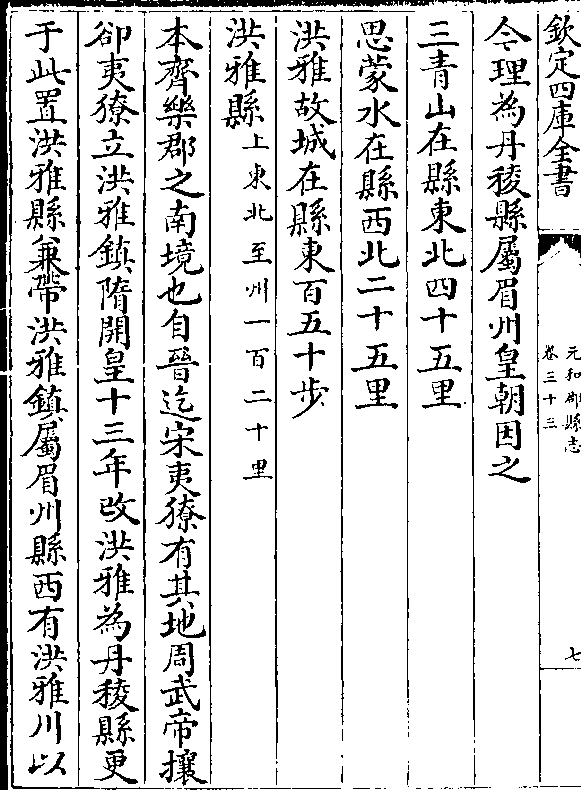 欽定四庫全書
元和郡縣志
卷三十三
七
今理為丹稜縣屬眉州皇朝因之
三青山在縣東北四十五里
思蒙水在縣西北二十五里
洪雅故城在縣東百五十步
洪雅縣上東北至州一百二十里
本齊樂郡之南境也自晉迄宋夷獠有其地周武帝攘
卻夷獠立洪雅鎮隋開皇十三年改洪雅為丹稜縣更
于此置洪雅縣兼帶洪雅鎮屬眉州縣西有洪雅川以